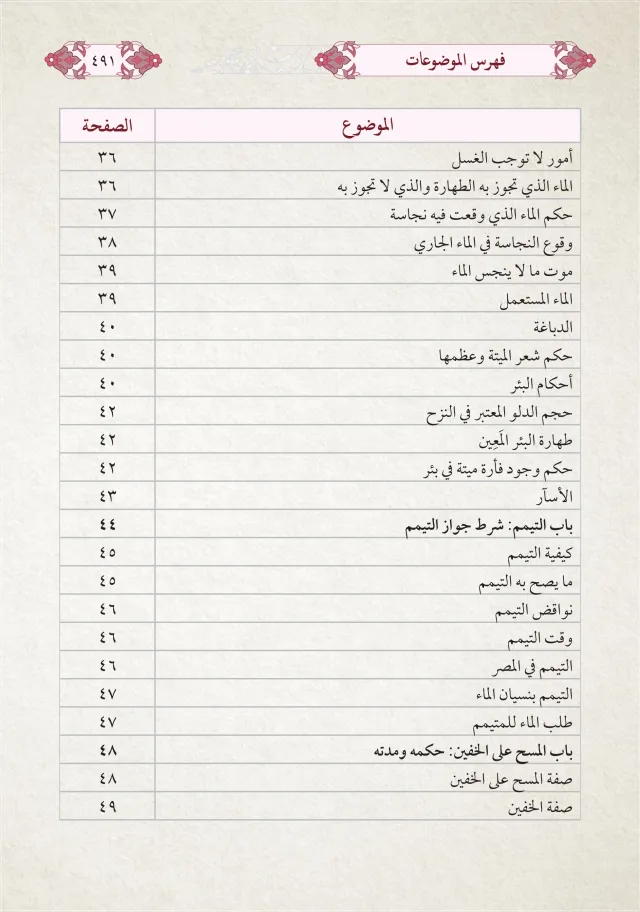 فهرس الموضوعات ٤٩١
الموضوع الصفحة
أمور لا توجب الغسل ٣٦
الماء الذي تجوز به الطهارة والذي لا تجوز به ٣٦
حكم الماء الذي وقعت فيه نجاسة ٣٧
وقوع النجاسة في الماء الجاري ٣٨
موت ما لا ينجس الماء ٣٩
الماء المستعمل ٣٩
الدباغة ٤٠
حكم شعر الميتة وعظمها ٤٠
أحكام البئر ٤٠
حجم الدلو المعتبر في النزح ٤٢
طهارة البئر المَعِين ٤٢
حكم وجود فأرة ميتة في بئر ٤٢
الأسآر ٤٣
باب التيمم: شرط جواز التيمم ٤٤
كيفية التيمم ٤٥
ما يصح به التيمم ٤٥
نواقض التيمم ٤٦
وقت التيمم ٤٦
التيمم في المصر ٤٦
التيمم بنسيان الماء ٤٧
طلب الماء للمتيمم ٤٧
باب المسح على الخفين: حكمه ومدته ٤٨
صفة المسح على الخفين ٤٨
صفة الخفين ٤٩